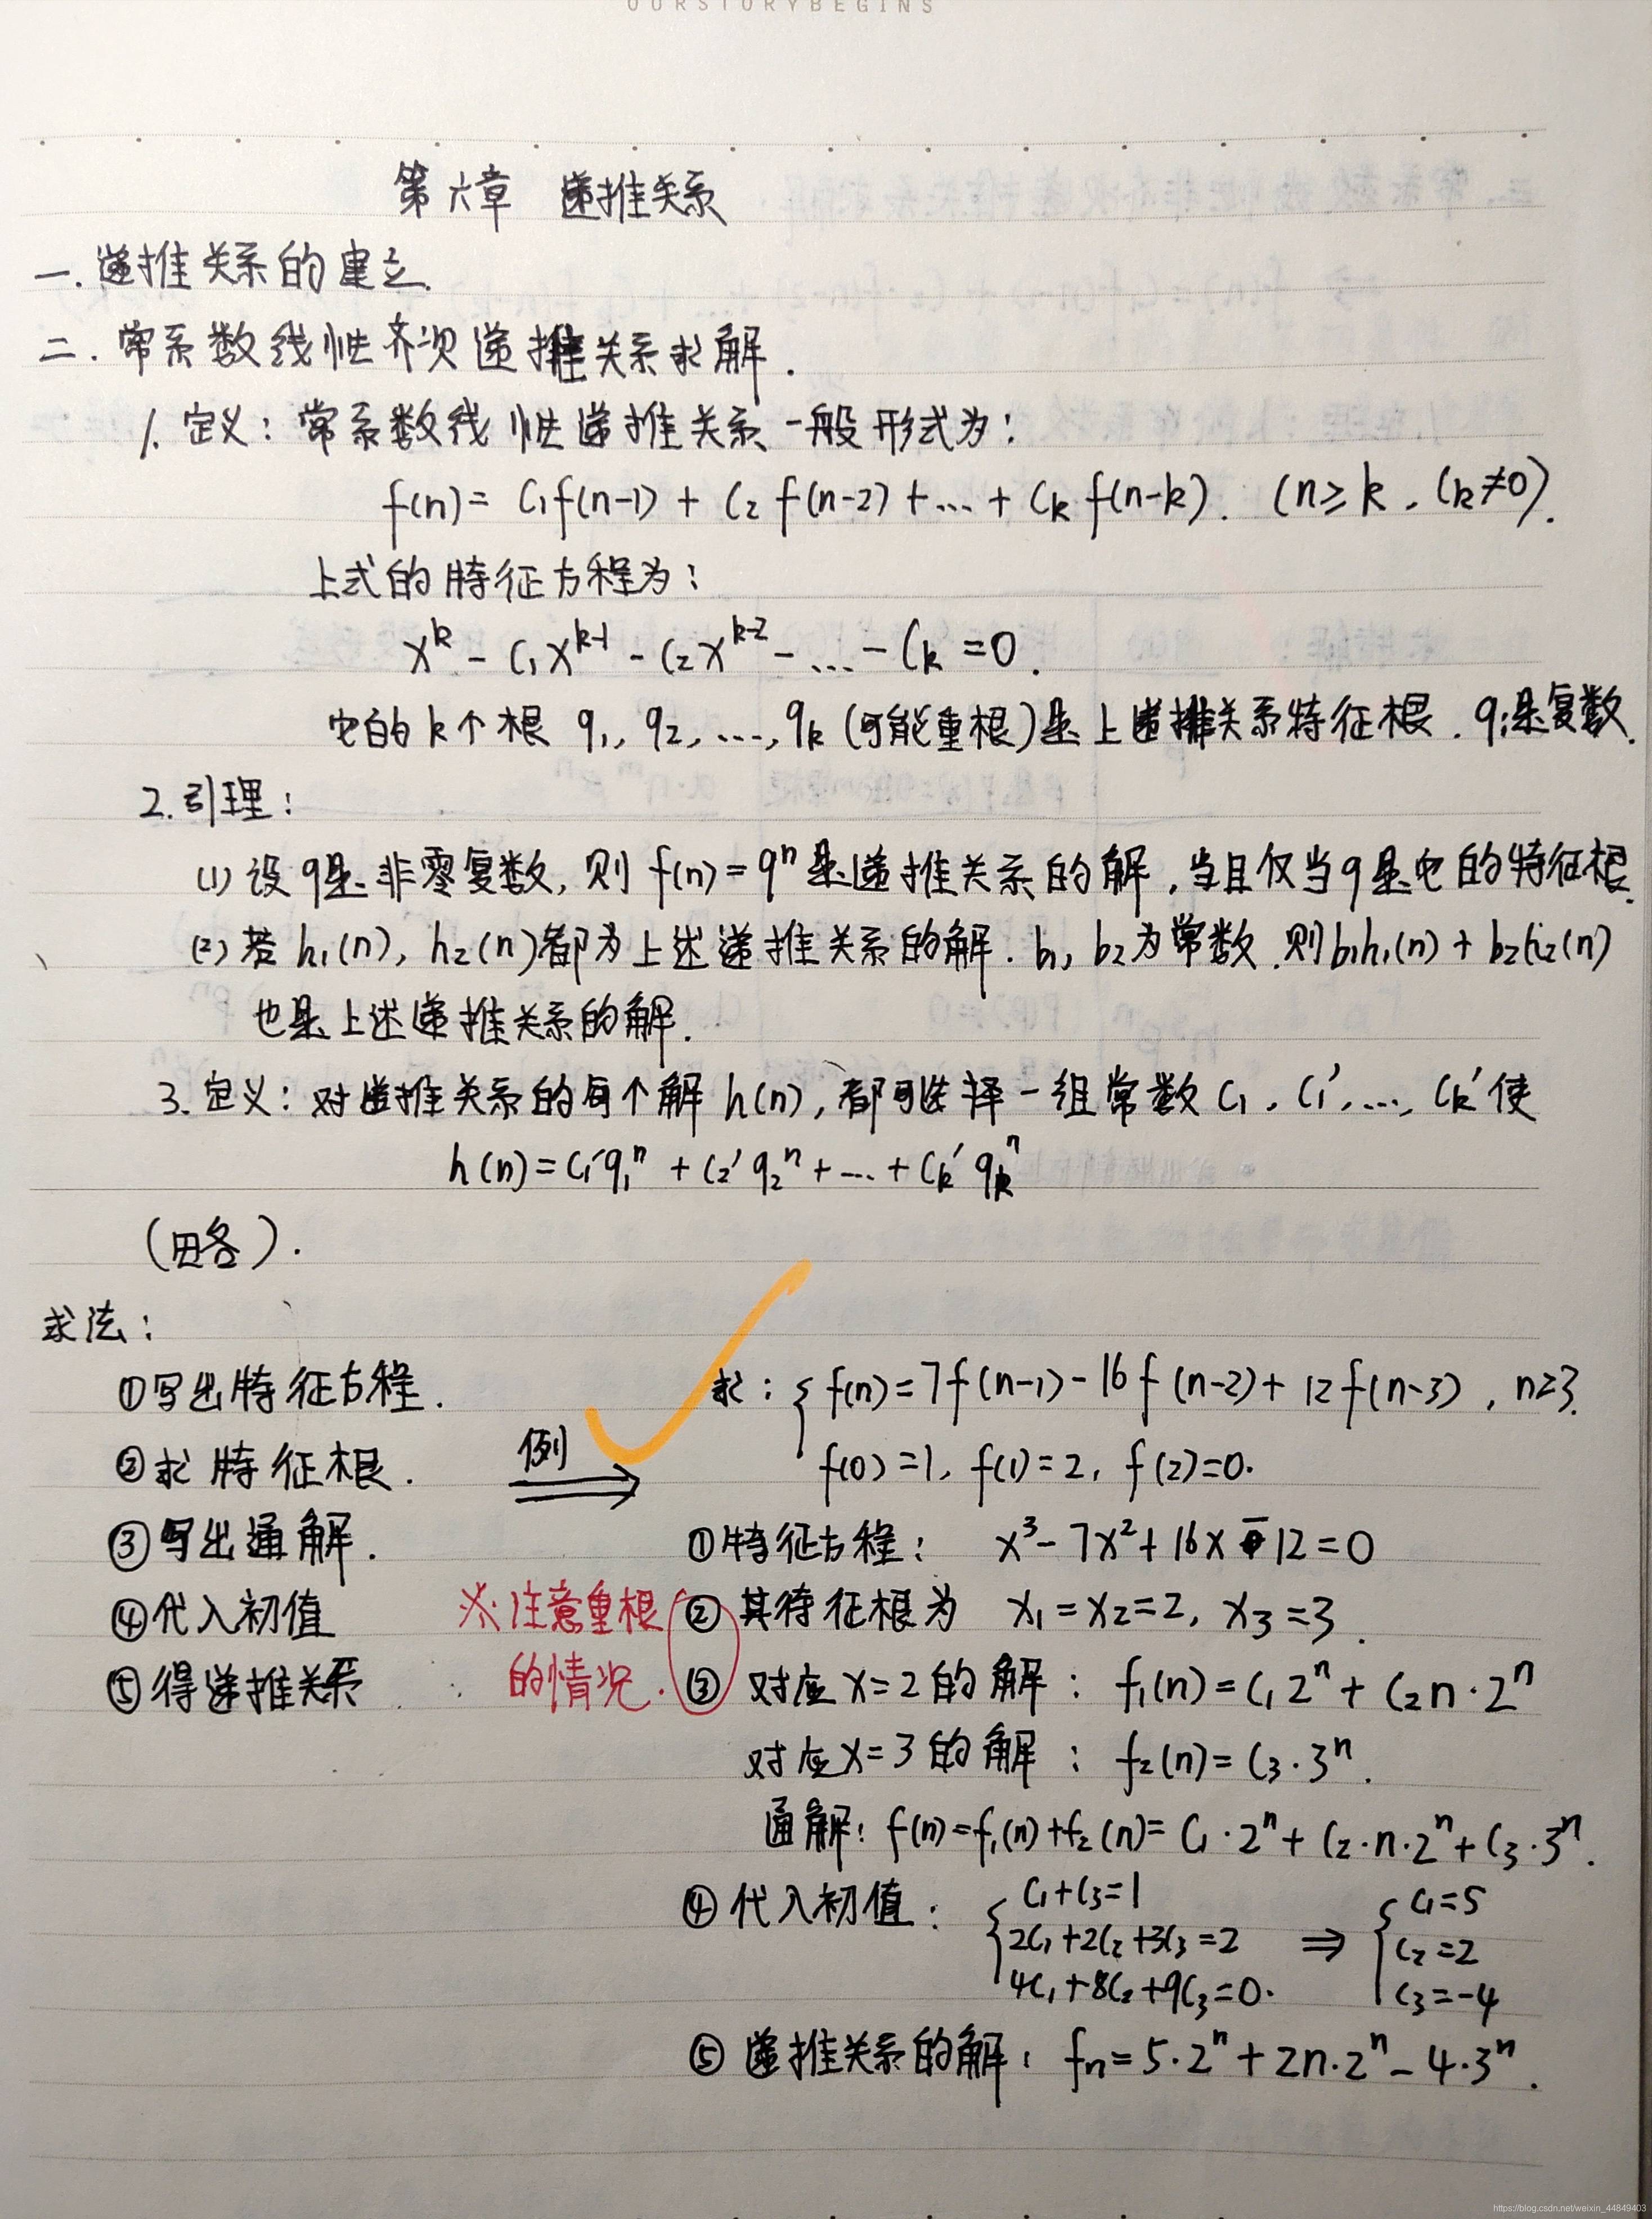 OURSTORYBEGINS
第六章 递推关系
一. 递推关系的建立.
二. 常系数线性齐次递推关系求解.
1. 定义: 常系数线性递推关系一般形式为:
f(n) = C₁f(n-1) + C₂f(n-2) + … + Cₖf(n-k). (n≥k, Cₖ≠0).
上式的特征方程为:
xᵏ - C₁xᵏ⁻¹ - C₂xᵏ⁻² - … - Cₖ = 0.
它的k个根 q₁, q₂, …, qₖ (可能重根)是上递推关系特征根. qᵢ是复数.
2. 引理:
(1) 设q是非零复数, 则 f(n) = qⁿ 是递推关系的解, 当且仅当q是它的特征根.
(2) 若 h₁(n), h₂(n)都为上述递推关系的解. b₁, b₂为常数. 则b₁h₁(n) + b₂h₂(n)
也是上述递推关系的解.
3. 定义: 对递推关系的每个解 h(n), 都可选择一组常数 C₁, C₁′, …, Cₖ′ 使
h(n) = C₁′q₁ⁿ + C₂′q₂ⁿ + … + Cₖ′qₖⁿ
(略).
求法:
①写出特征方程.
②求特征根.
③写出通解.
④代入初值
⑤得递推关系
例
求: { f(n) = 7f(n-1) - 16f(n-2) + 12f(n-3), n≥3.
f(0) = 1, f(1) = 2, f(2) = 0.
①特征方程: x³ - 7x² + 16x - 12 = 0
※注意重根
的情况.
②其特征根为 x₁ = x₂ = 2, x₃ = 3.
③ 对应x=2的解: f₁(n) = C₁2ⁿ + C₂n·2ⁿ
对应x=3的解: f₂(n) = C₃·3ⁿ.
通解: f(n) = f₁(n) + f₂(n) = C₁·2ⁿ + C₂·n·2ⁿ + C₃·3ⁿ.
④代入初值: { C₁+C₃=1 ⇒ { C₁=5
2C₁+2C₂+3C₃=2 C₂=2
4C₁+8C₂+9C₃=0. C₃=-4
⑤ 递推关系的解: fn = 5·2ⁿ + 2n·2ⁿ - 4·3ⁿ.
https://blog.csdn.net/weixin_44849403